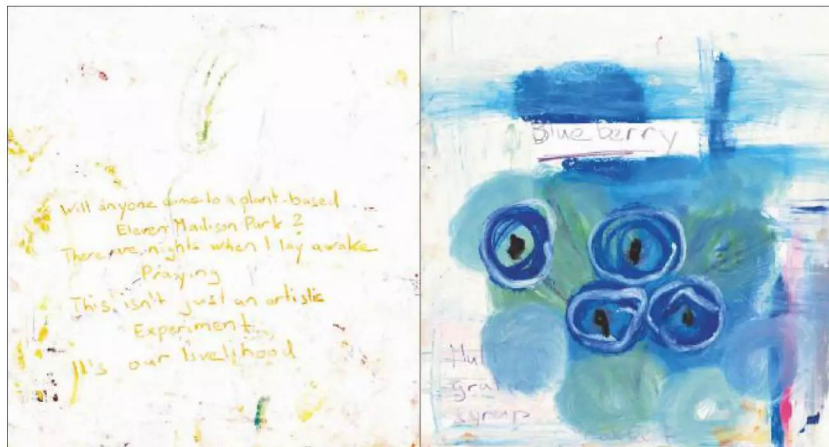 Will anyone come to a plant-based
Eleven Madison Park?
There are nights when I lay awake
Praying
This isn't just an artistic
Experiment
It's our livelihood
Blueberry
syrup